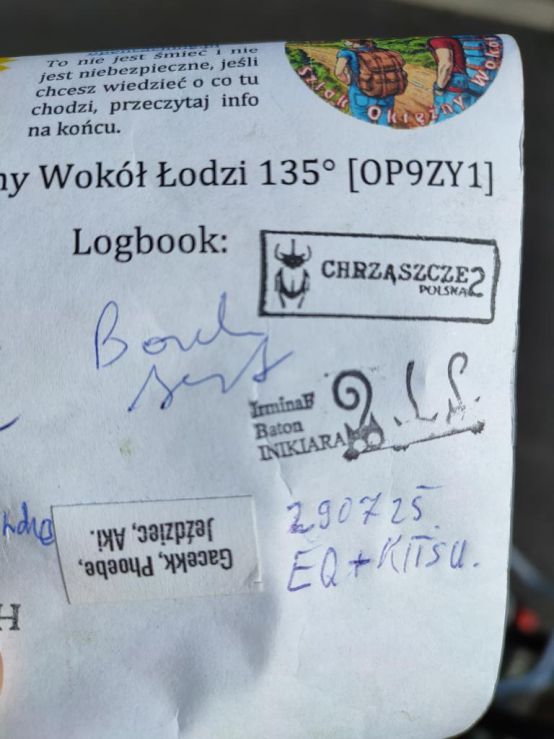 To nie jest śmieć i nie
jest niebezpieczne, jeśli
chcesz wiedzieć o co tu
chodzi, przeczytaj info
na końcu.
Szlak Okrężny Wokó
ny Wokół Łodzi 135° [OP9ZY1]
Logbook:
CHRZĄSZCZE2
POLSKA
IrminaF
Baton
INIKIARA
Gacekk, Phoebe,
Jeździec, Aki.
290725.
EQ + KITSU.
H